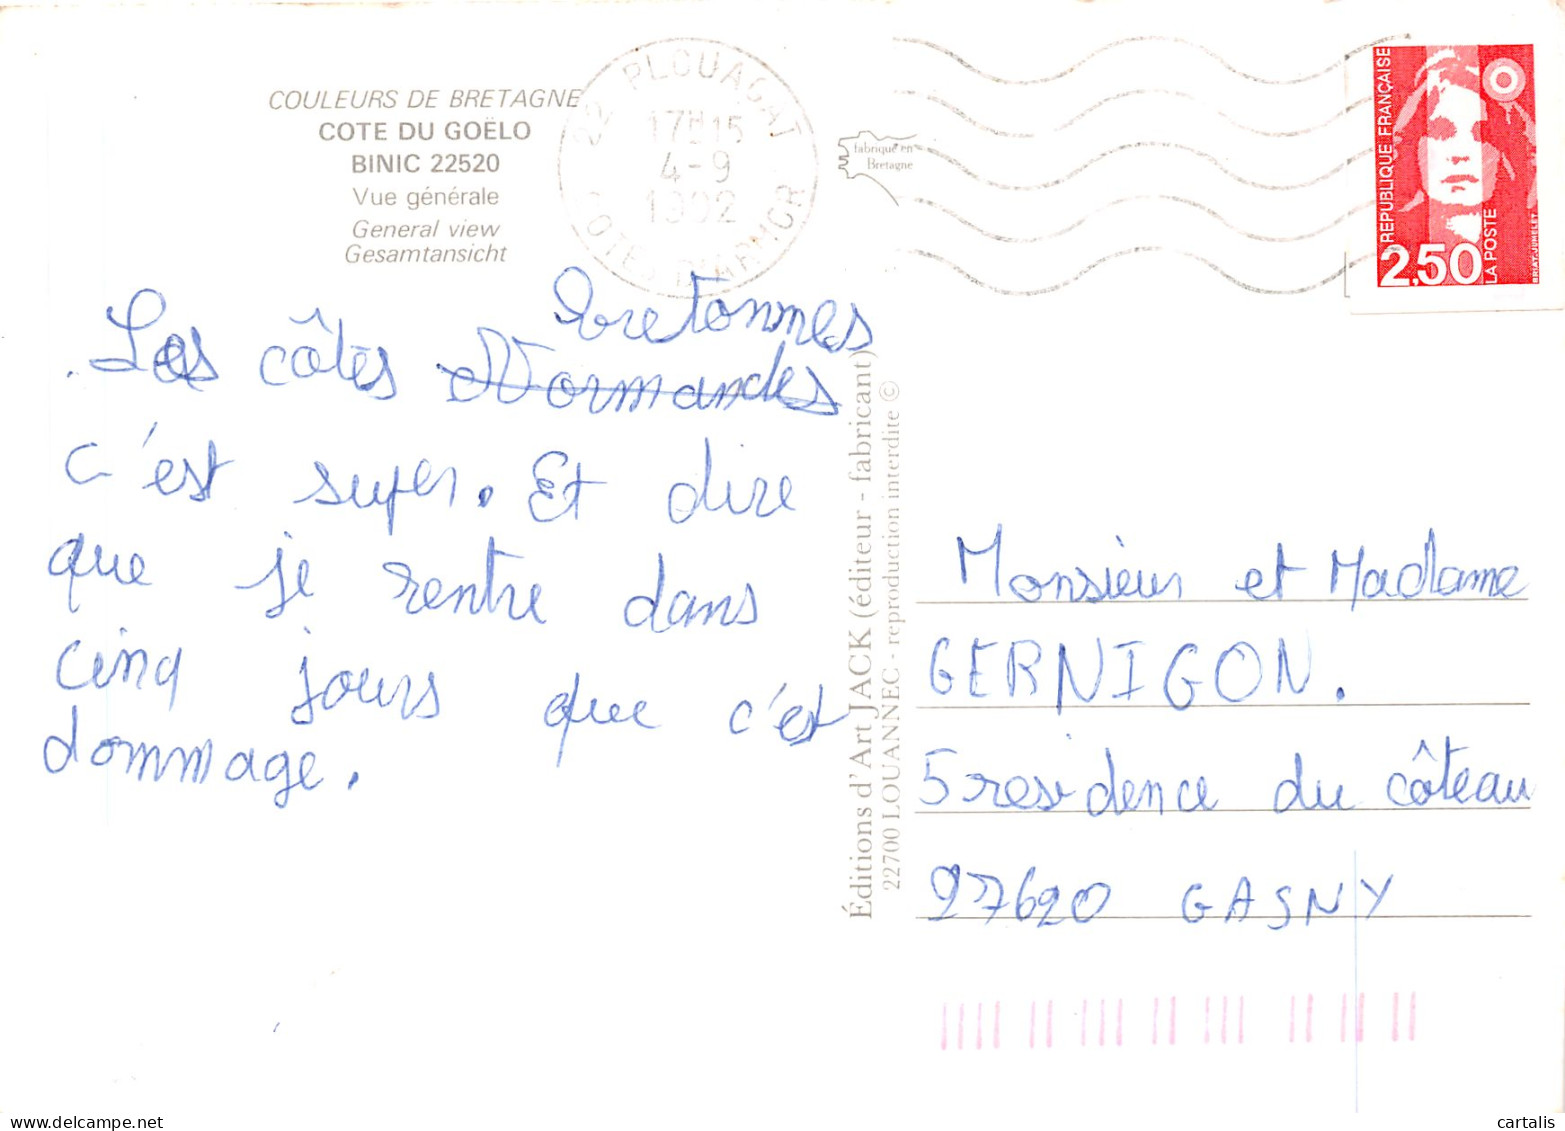 COULEURS DE BRETAGNE
COTE DU GOËLO
BINIC 22520
Vue générale
General view
Gesamtansicht
22 PLOUAGAT
17H15
4-9
1992
COTES D'ARMOR
fabriqué en
Bretagne
REPUBLIQUE FRANÇAISE
2,50
LA POSTE
BRIAT-JUMELET
bretonnes
Les côtes Normandes
c'est super. Et dire
que je rentre dans
cinq jours que c'est
dommage.
Éditions d'Art JACK (éditeur - fabricant)
22700 LOUANNEC - reproduction interdite ©
Monsieur et Madame
GERNIGON.
5 residence du côteau
27620 GASNY
www.delcampe.net
cartalis